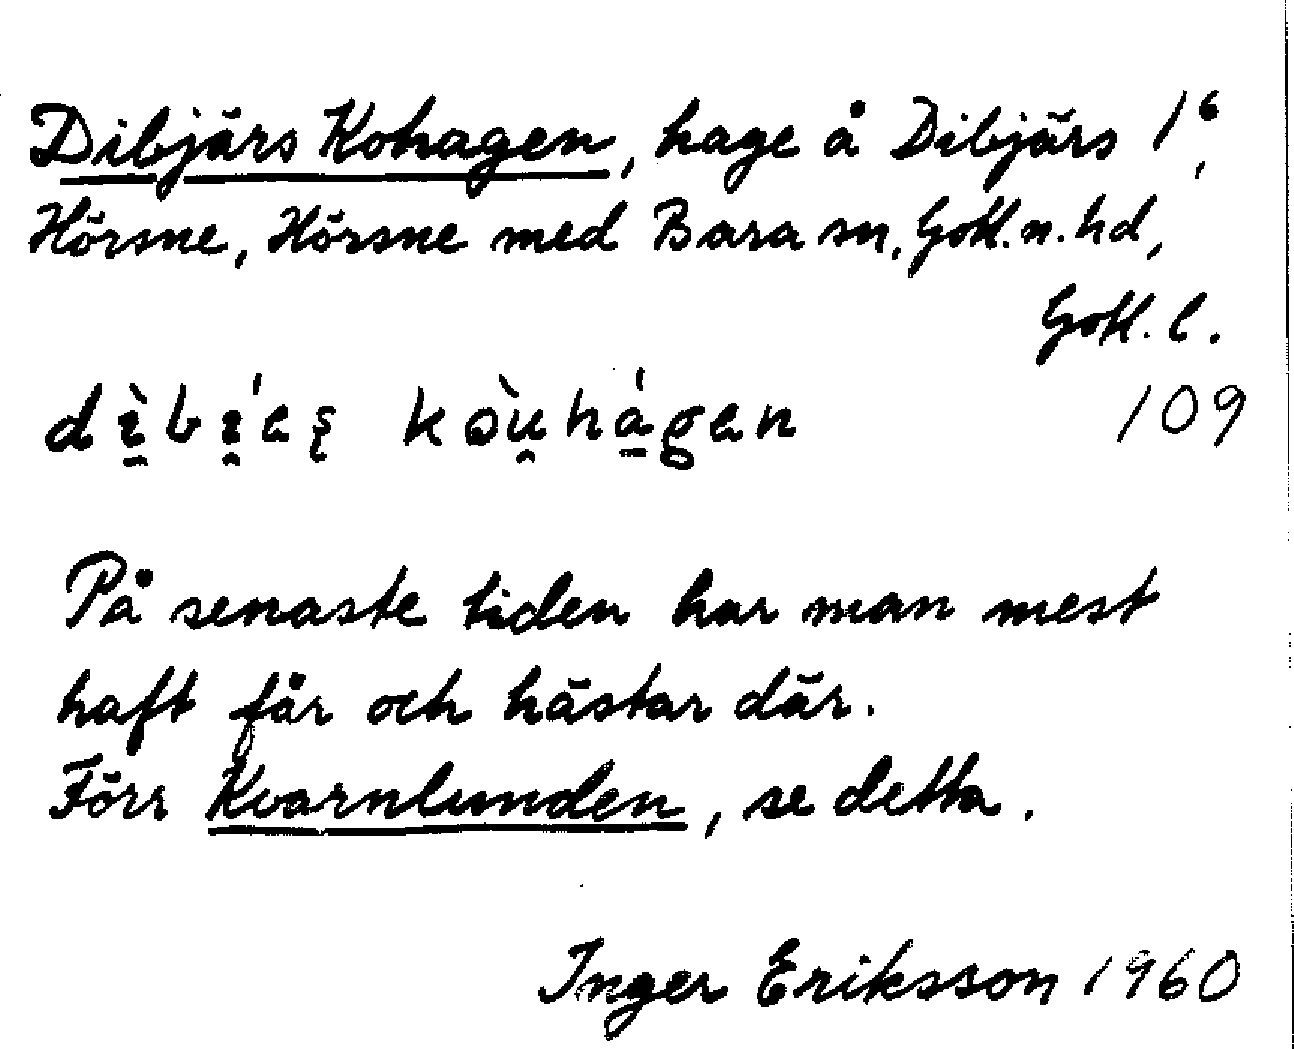 Dibjärs Kohagen, hage å Dibjärs 1⁶,
Hörsne, Hörsne med Bara sn, Gotl. n. hd,
Gotl. l.
109
På senaste tiden har man mest
haft får och hästar där.
Förr Kvarnlunden, se detta.
Inger Eriksson 1960